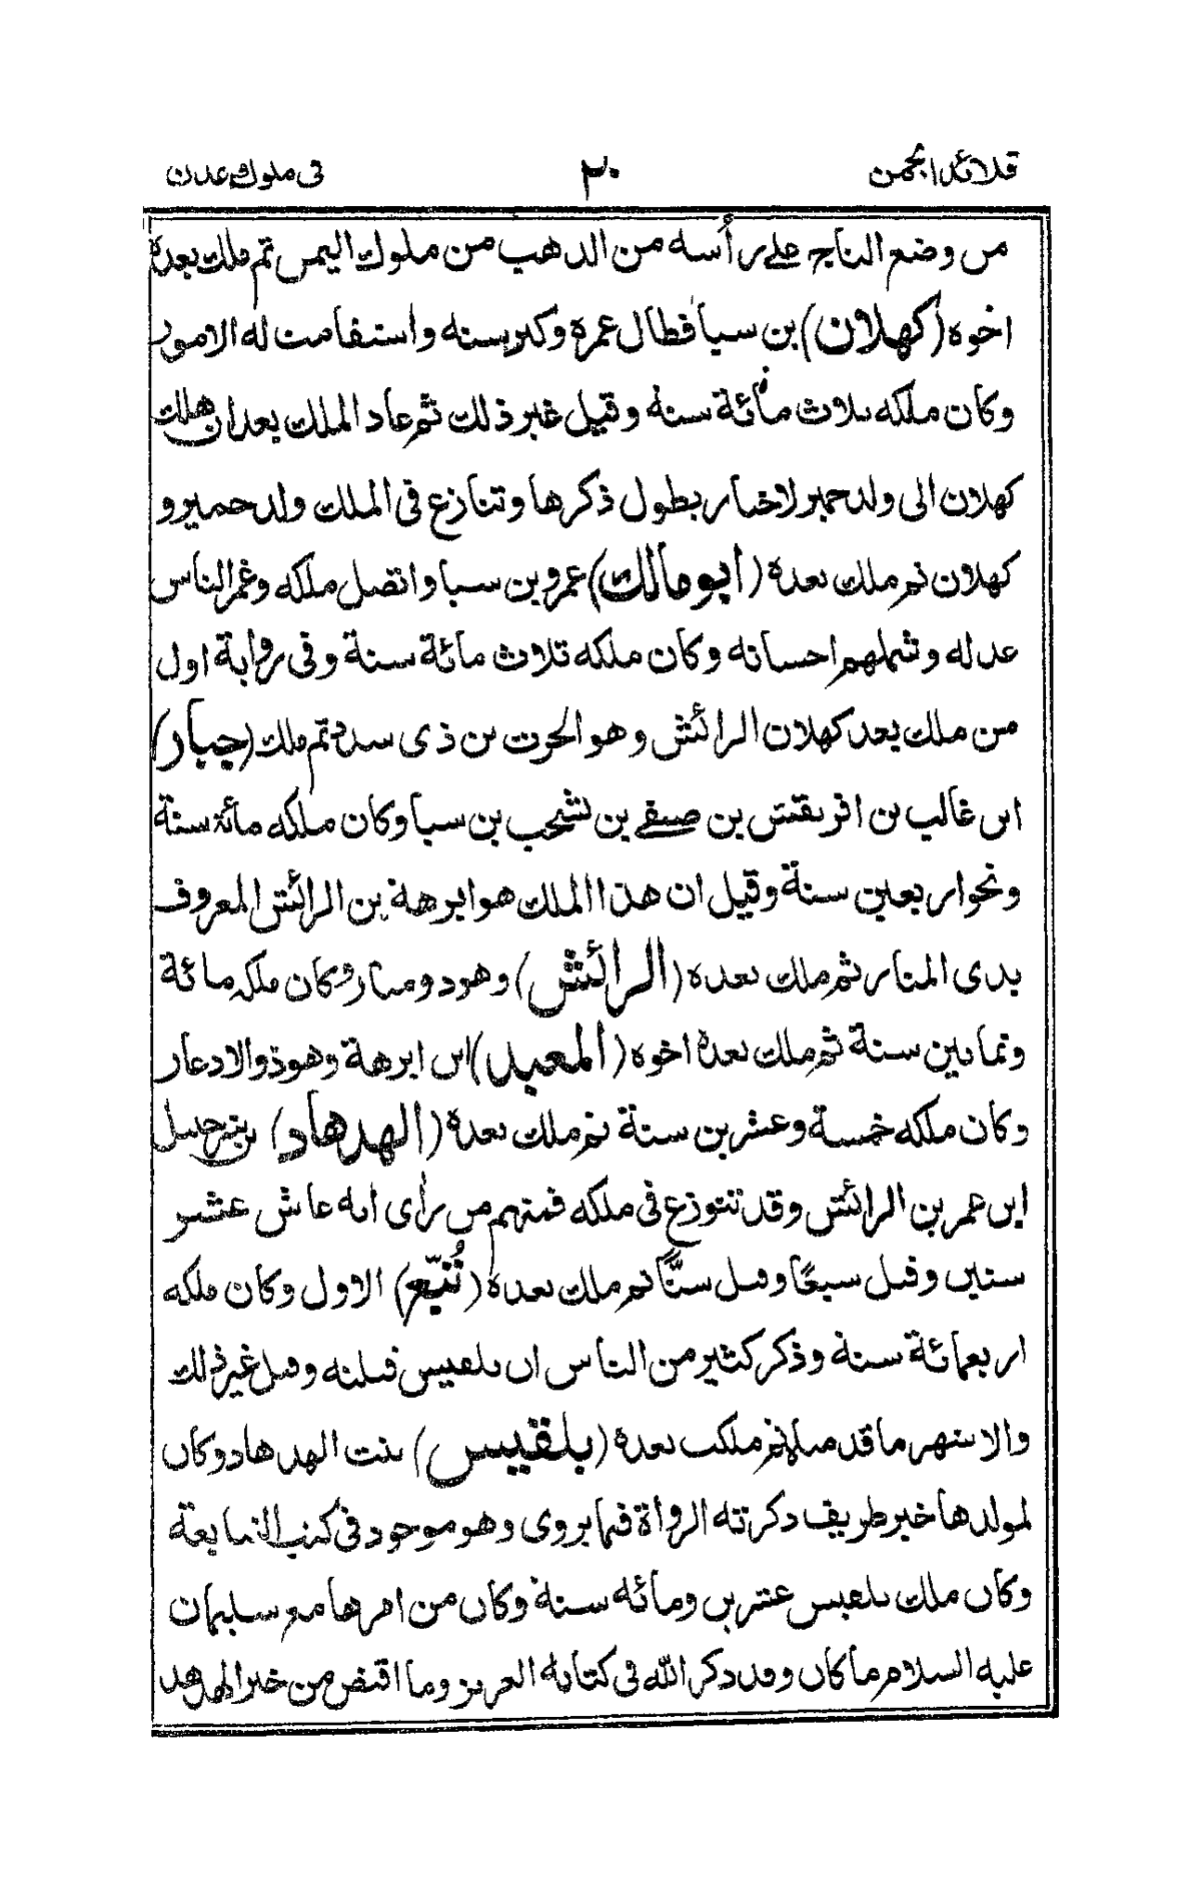 قلائد الجمن ٢٠ في ملوك عدن
من وضع التاج على رأسه من الذهب من ملوك اليمن ثم ملك بعده
اخوه (كهلان) بن سبا فطال عمره وكبر سنه واستقامت له الامور
وكان ملكه ثلاث مأئة سنة وقيل غير ذلك ثم عاد الملك بعد ان هلك
كهلان الى ولد حمير لاخبار يطول ذكرها وتنازع في الملك ولد حمير و
كهلان ثم ملك بعده (ابو مالك) عمرو بن سبا واتصل ملكه وغمر الناس
عدله وشملهم احسانه وكان ملكه ثلاث مائة سنة وفي رواية اول
من ملك بعد كهلان الرائش وهو الحرث بن ذي سدد ثم ملك (جبار)
ابن غالب بن افريقتس بن صيفي بن يشجب بن سبا وكان ملكه مائة سنة
ونحو اربعين سنة وقيل ان هذا الملك هو ابرهة بن الرائش المعروف
بذي المنار ثم ملك بعده (الرائش) وهو ذو منار وكان ملكه مائة
وثمانين سنة ثم ملك بعده اخوه (المعبد) ابن ابرهة وهو ذو الاذعار
وكان ملكه خمسة وعشرين سنة ثم ملك بعده (الهدهاد) بن شرحبيل
ابن عمر بن الرائش وقد تنوزع في ملكه فمنهم من رأى انه عاش عشر
سنين وقيل سبعًا وقيل ستًّا ثم ملك بعده (تُبّع) الاول وكان ملكه
اربعمائة سنة وذكر كثير من الناس ان بلقيس قتلته وقيل غير ذلك
والاشهر ما قدمناه ثم ملكت بعده (بلقيس) بنت الهدهاد وكان
لمولدها خبر طريف ذكرته الرواة فيما يروى وهو موجود في كتب التبابعة
وكان ملك بلقيس عشرين ومائة سنة وكان من امرها مع سليمان
عليه السلام ما كان وقد ذكر الله في كتابه العزيز وما اقتص من خبر الهدهد